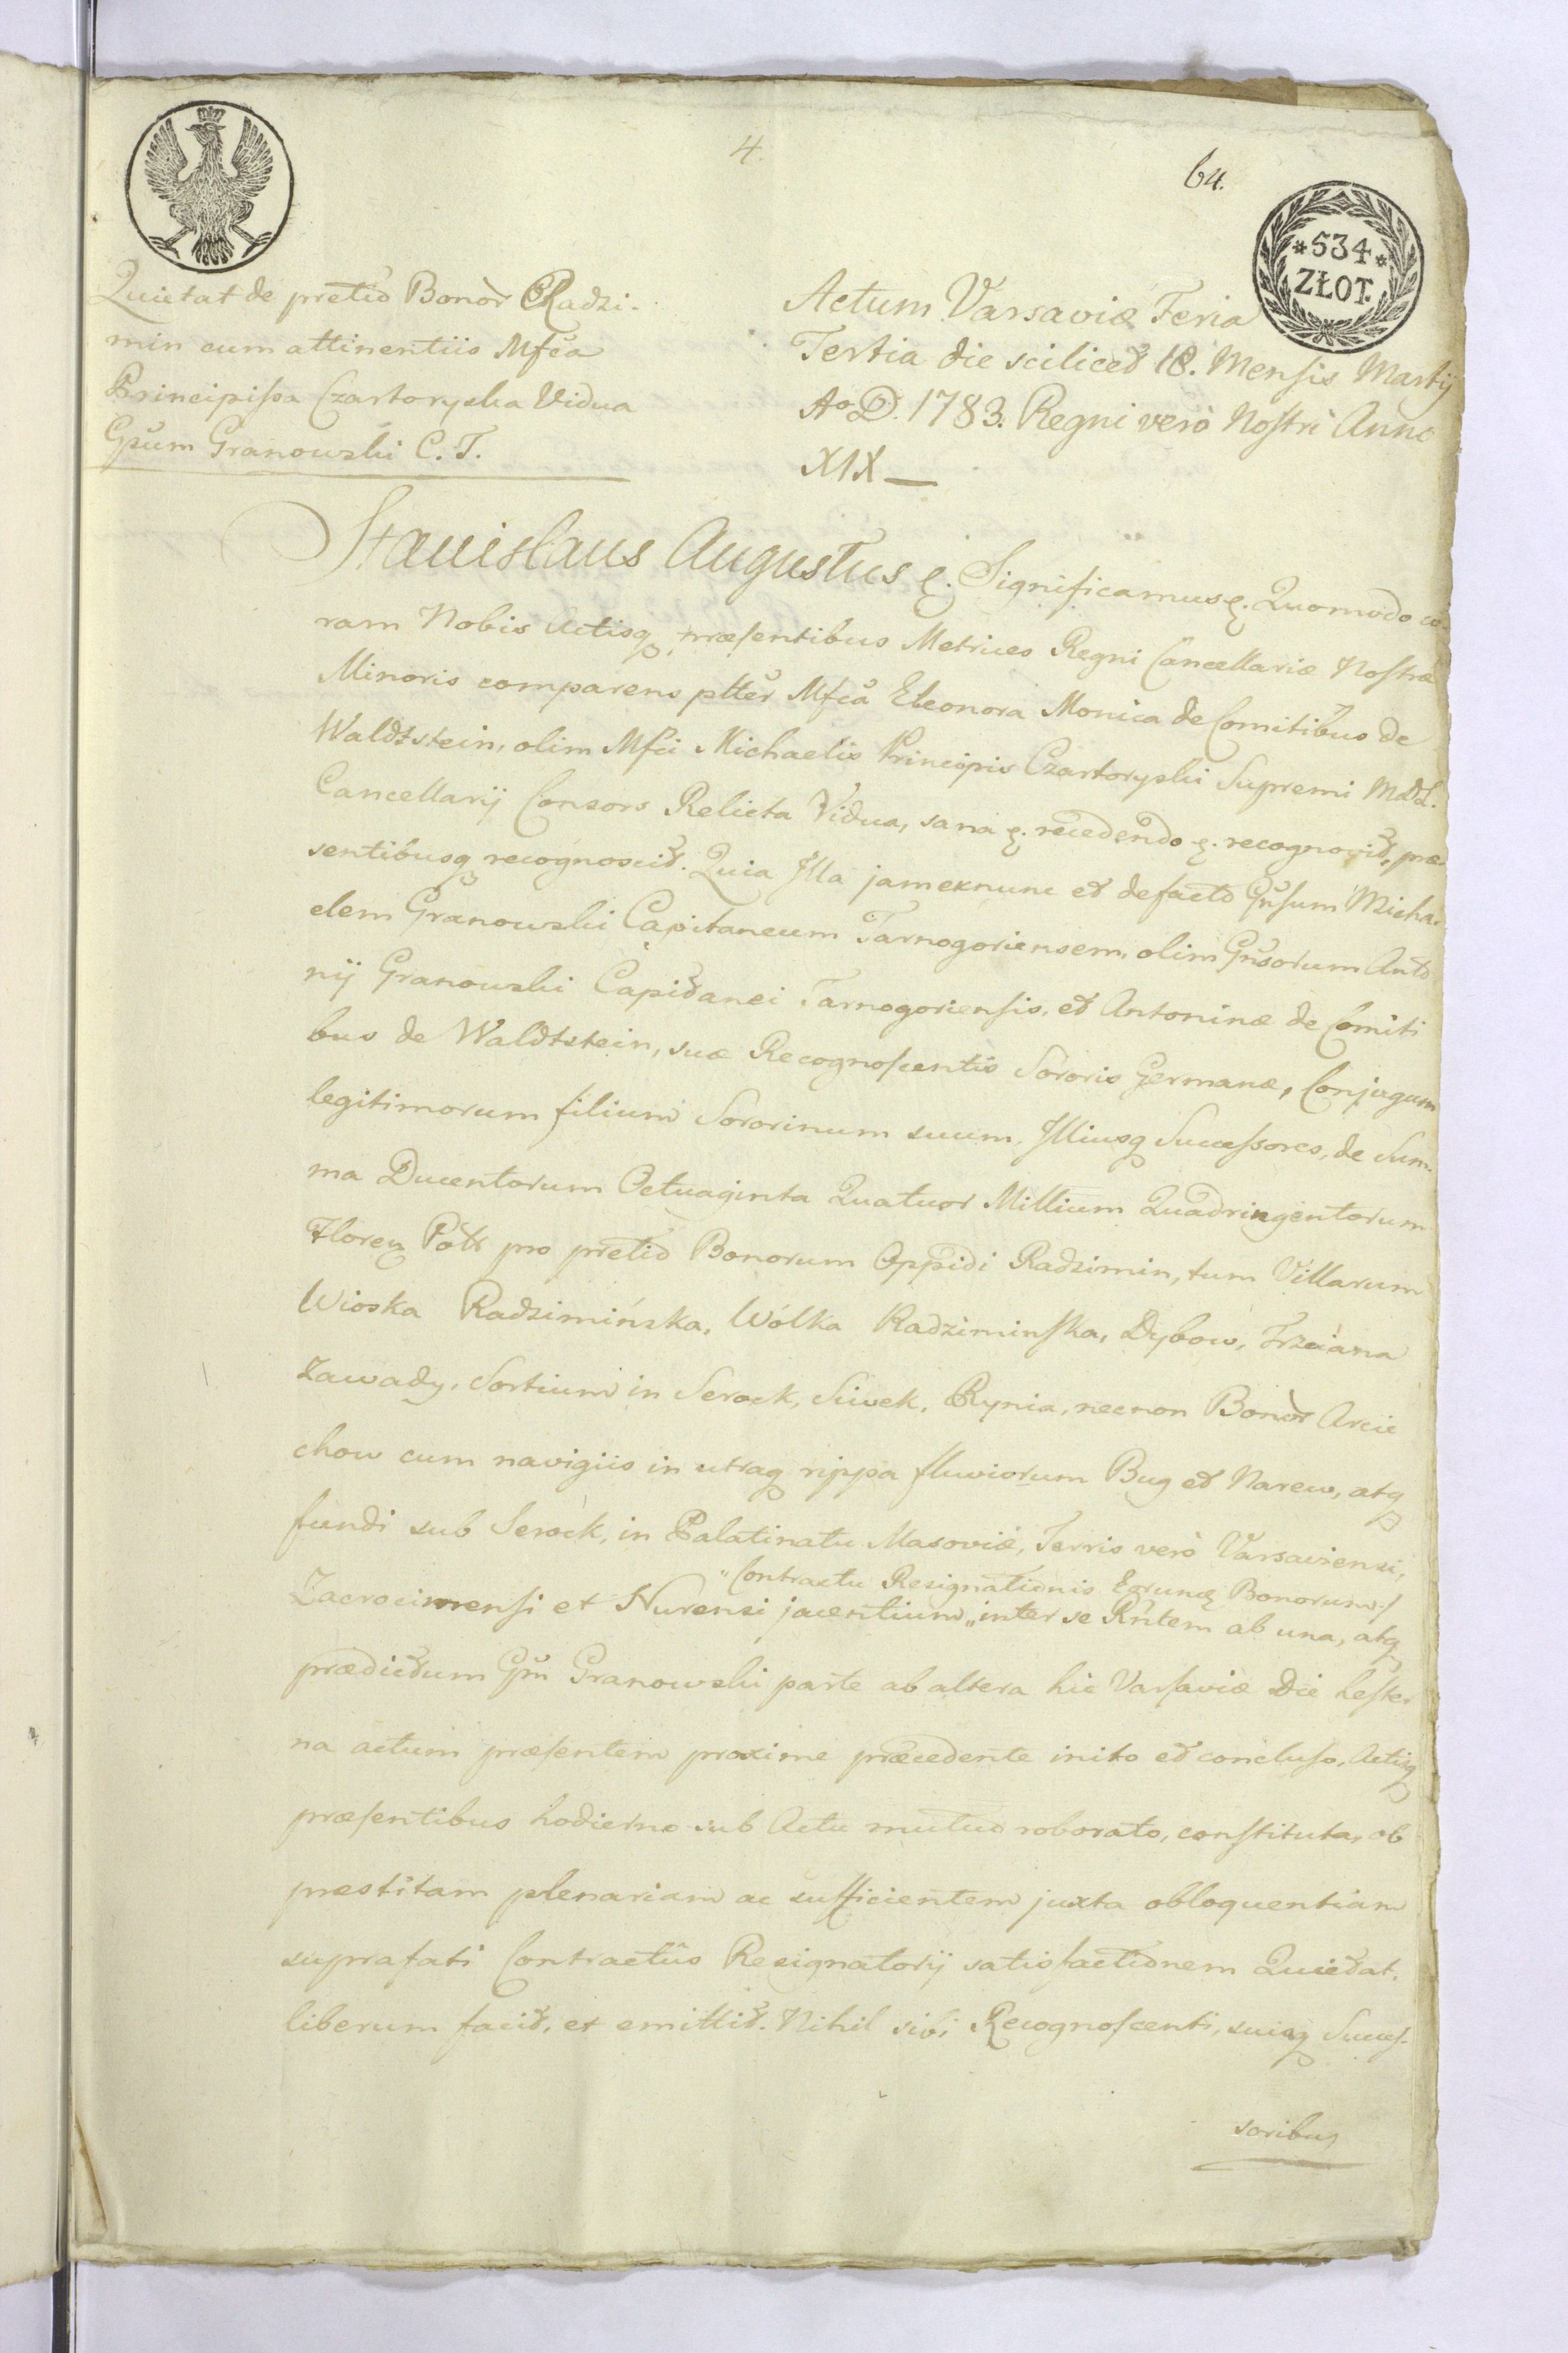 4.
64.
*534*
ZŁOT.
Quietat de pretio Bonor Radzi-
min cum attinentiis Mfca
Principissa Czartoryska Vidua
Gsum Granowski C. T.
Actum Varsaviæ Feria
Tertia die scilicet 18. Mensis Martij
Aº D. 1783. Regni verò Nostri Anno
XIX—
Stanislaus Augustus &. Significamus &. Quomodo co-
ram Nobis Actisq præsentibus Metrices Regni Cancellariæ Nostræ
Minoris comparens ptter Mfca Eleonora Monica de Comitibus de
Waldtstein, olim Mfci Michaelis Principis Czartoryski Supremi MDL.
Cancellarij Consors Relicta Vidua, sana &. recedendo &. recognovit, præ-
sentibusq recognoscit. Quia Illa jam exnunc et defacto Gnsum Micha-
elem Granowski Capitaneum Tarnogoriensem, olim Gnsorum Anto
nij Granowski Capitanei Tarnogoriensis, et Antoninæ de Comiti
bus de Waldtstein, suæ Recognoscentis Sororis Germanæ, Conjugum
legitimorum filium Sororinum suum, Illiusq Successores, de Sum-
ma Ducentorum Octuaginta Quatuor Millium Quadringentorum
Floreņ Polł pro pretio Bonorum Oppidi Radzimin, tum Villarum
Wioska Radzimińska, Wólka Radziminska, Dybow, Trzciana
Zawady, Sortium in Serock, Siwek, Rynia, necnon Bonor Arcie
chow cum navigiis in utraq rippa fluviorum Bug et Narew, atq
fundi sub Serock, in Palatinatu Masoviæ, Terris verò Varsaviensi,
"Contractu Resignationis Eorunđ Bonorum./
Zacrocimensi et Nurensi jacentium, "inter se Rntem ab una, atq
prædictum Gm Granowski parte ab altera hic Varsaviæ Die Hester-
na actum præsentem proxime præcedente inito et concluso, Actisq
præsentibus hodierno sub Actu mutuo roborato, constituta, ob
præstitam plenariam ac sufficientem juxta obloquentiam
suprafati Contractûs Resignatorij satisfactionem Quietat,
liberum facit, et emittit. Nihil sibi Recognoscenti, suisq Succes-
soribus